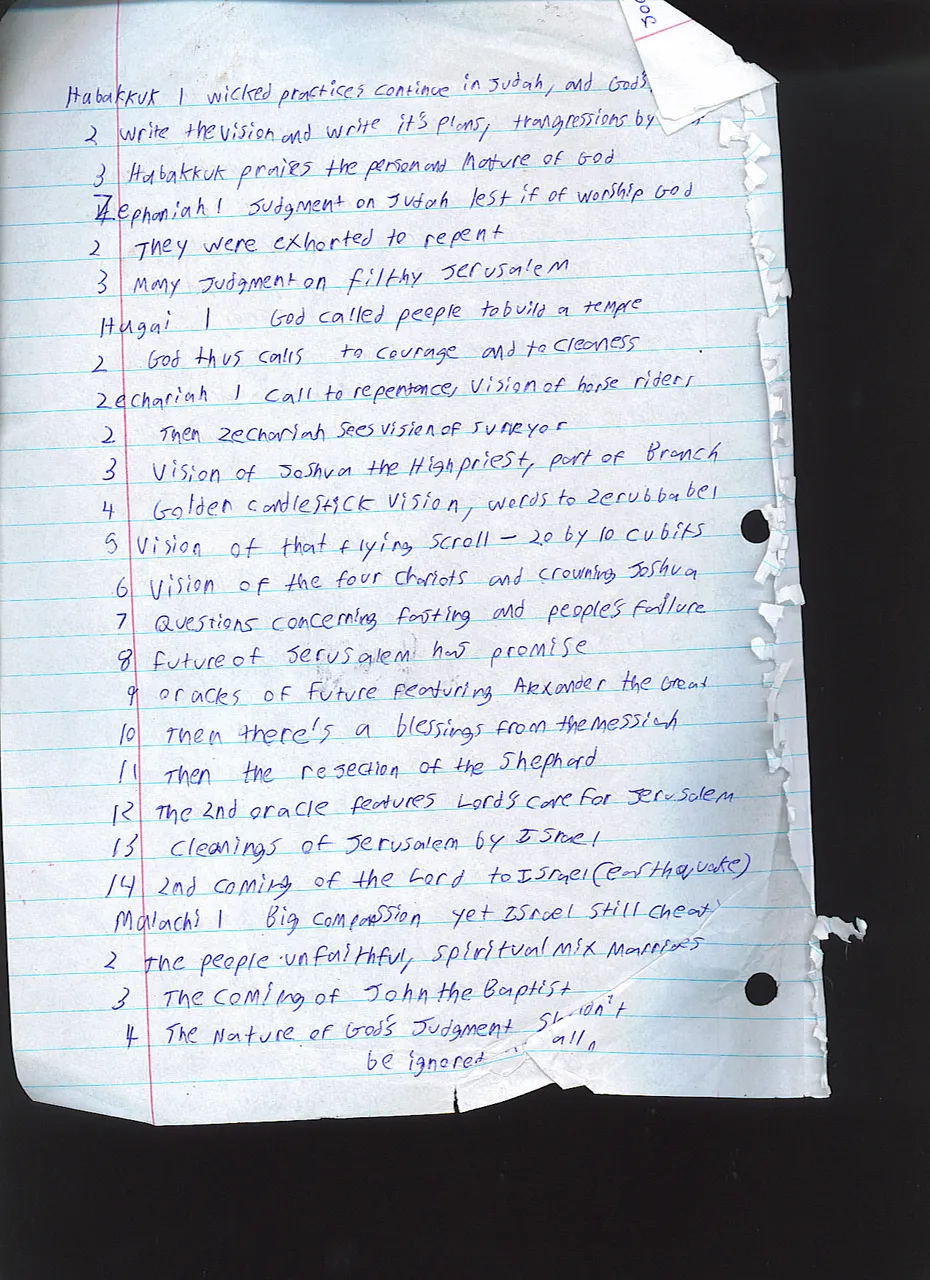 Habakkuk 1 wicked practices continue in Judah, and God's
2 write the vision and write it's plans, trangressions by
3 Habakkuk praies the person and Nature of God
Zephaniah 1 Judgment on Judah lest if of worship God
2 They were exhorted to repent
3 Many Judgment on filthy Jerusalem
Hagai 1 God called peeple to build a tempre
2 God thus calls to courage and to cleaness
Zechariah 1 call to repentance, vision of horse riders
2 Then Zechariah sees vision of surveyor
3 Vision of Joshua the High priest, part of Branch
4 Golden candlestick vision, words to Zerubbabel
5 Vision of that flying scroll - 20 by 10 cubits
6 Vision of the four chariots and crowning Joshua
7 Questions concerning fasting and people's failure
8 future of Jerusalem has promise
9 oracles of future featuring Alexander the Great
10 Then there's a blessings from the messiah
11 Then the rejection of the Shephard
12 The 2nd oracle features Lord's care for Jerusalem
13 cleanings of Jerusalem by Israel
14 2nd coming of the Lord to Israel (earthquake)
Malachi 1 Big compassion yet Israel still cheat
2 the people unfaithful, spiritual mix marriages
3 The coming of John the Baptist
4 The Nature of God's Judgment
be ignored all